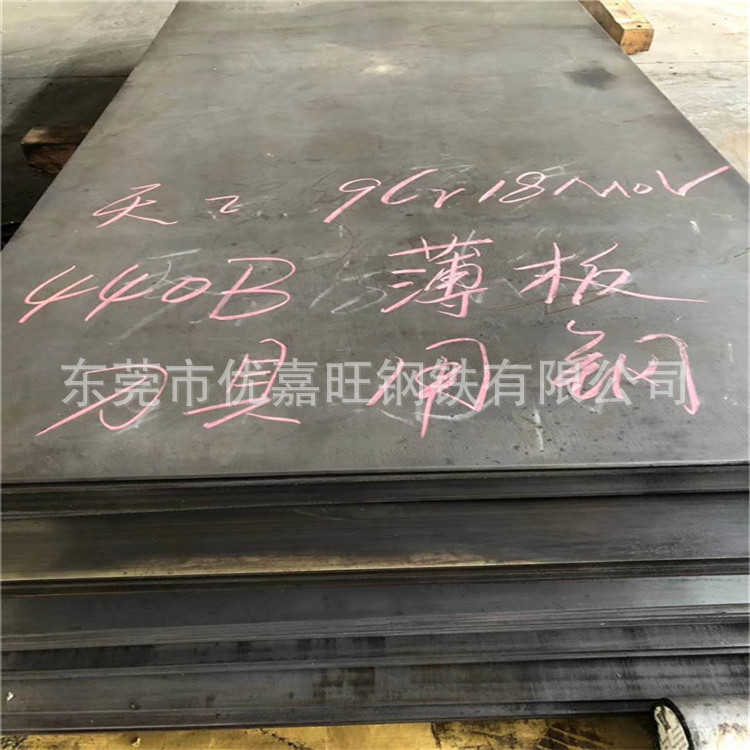 天工 9Cr18MoV
440B 薄板
刀具用钢
东莞市优嘉旺钢铁有限公司